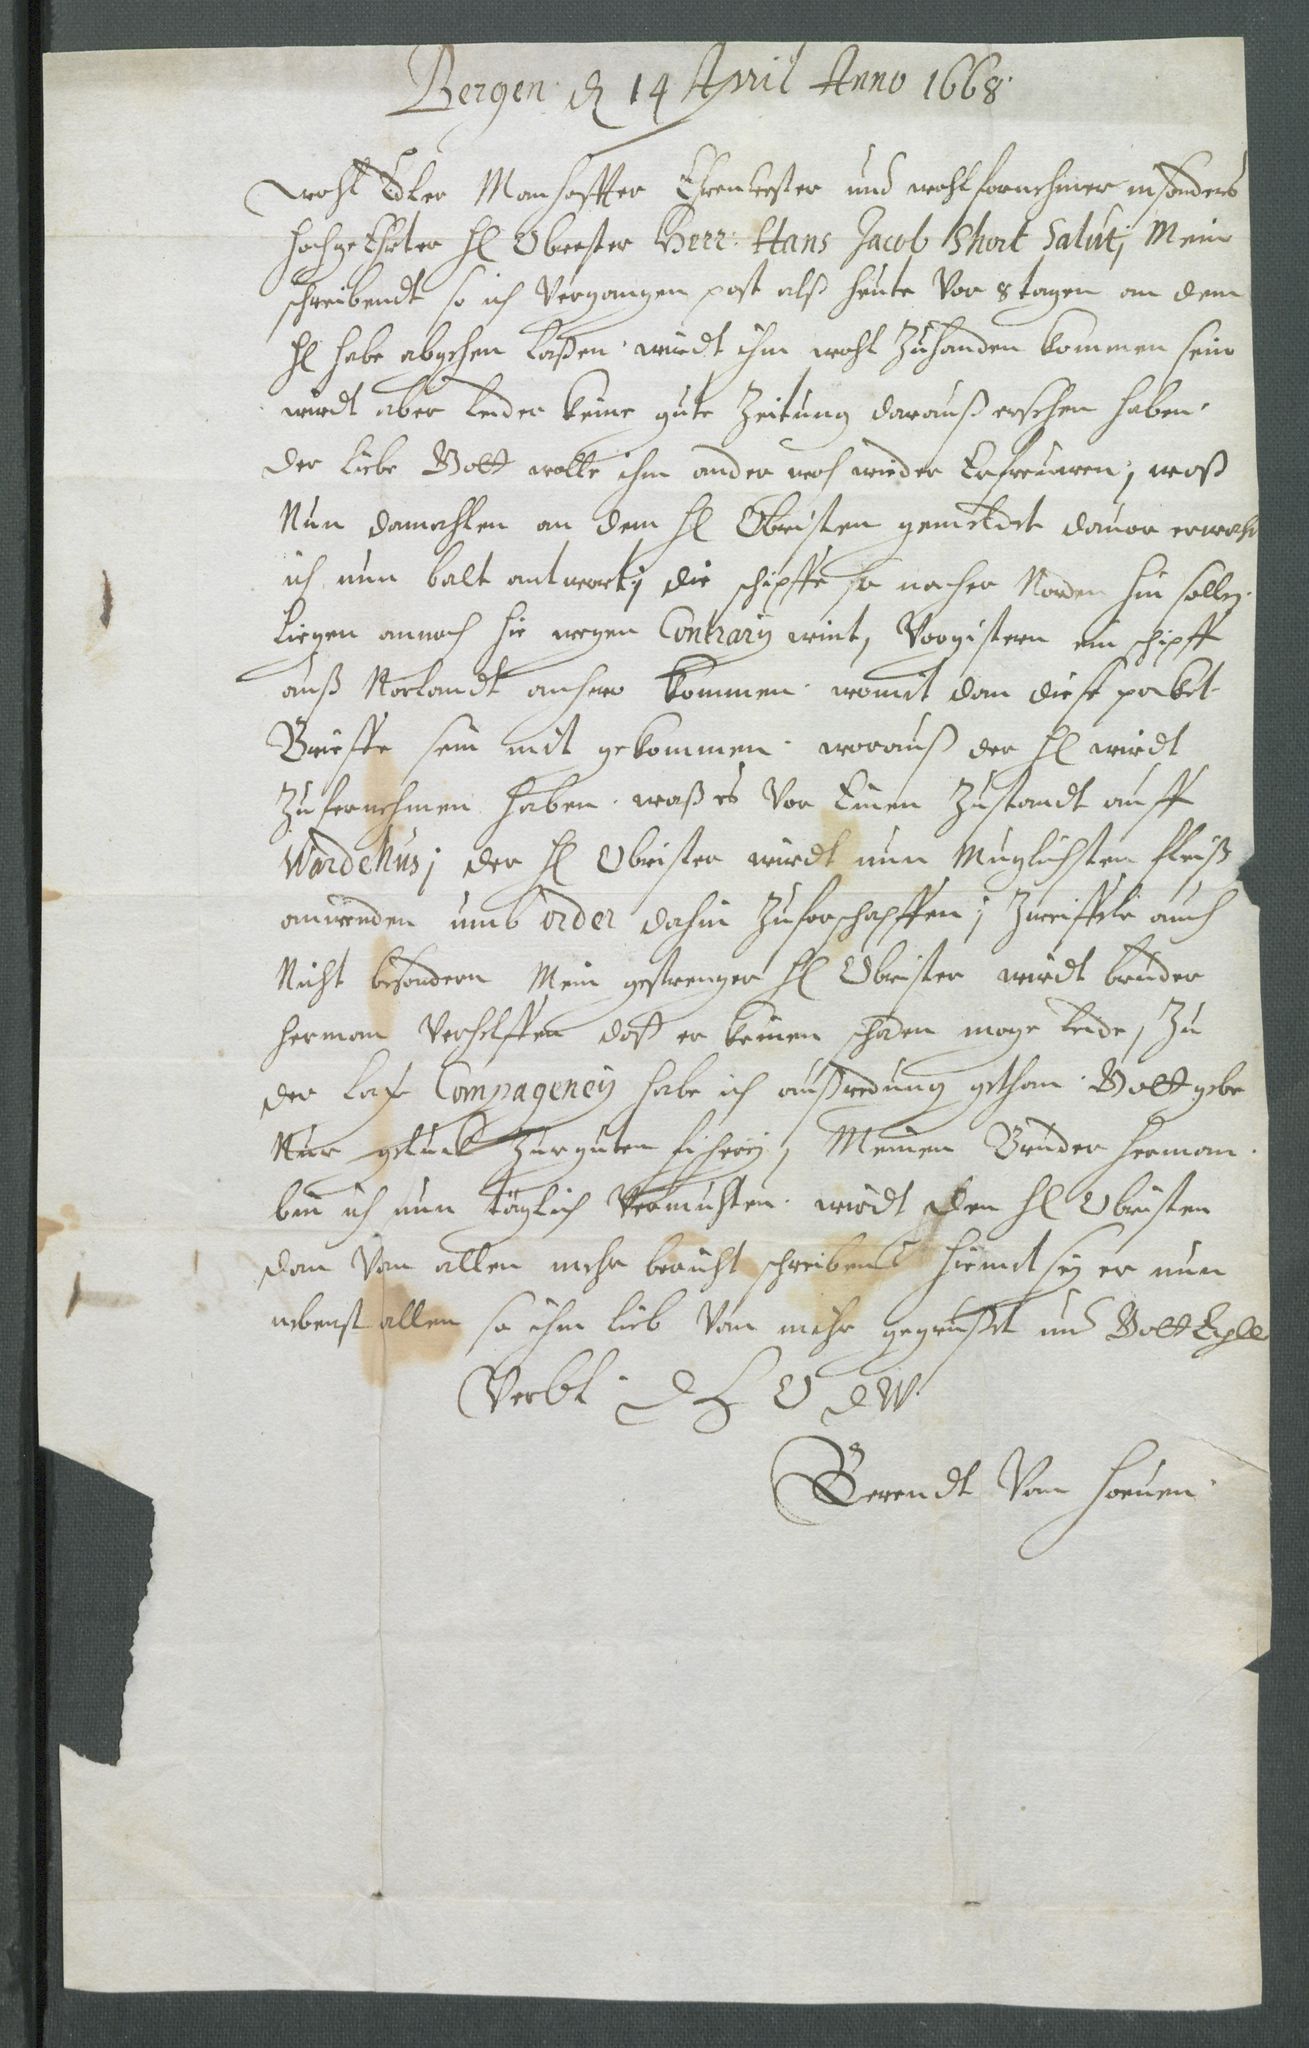 Bergen d 14 April Anno 1668
Wohl Edler Manhaffter Ehrenvester und wohlfornehmer insonders
hochgeEhrter Hl Obrester Herr: Hans Jacob Short Salut; Mein
schreibendt so ich Vergangen post alß heute Vor 8 tagen an dem
Hl habe abgehen laßen wirdt ihm wohl Zuhanden kommen sein
wirdt aber leider keine gute Zeitung darauß ersehen haben
der liebe Gott wolle ihm ander wech wieder Erfreuwen; waß
Nun damahlen an dem Hl Obristen gemeldet dauor erwahrt
ich nun balt antwort; die schipffe so nacher Norden hin sollen
liegen annoch hie wegen Contrarij wint, Voorgistern ein schipff
auß Norlandt anhero kommen womit dan diese packet
Brieffe sein mit gekommen worauß der Hl wirdt
Zufernehmen haben waß es Vor Einen Zustandt auff
Wardehus; der Hl Obrister wirdt nun Muglichsten fleiß
anwenden umb order dahin Zuforschapffen; Zweiffele auch
Nicht besondern Mein gestrenger Hl Obrister wirdt bruder
Herman Verhelffen daß er keinen schaden moge leide, Zu
der Compagencij habe ich außredung gethan Gott gebe
Nur geluck Zur guten fischerij, Meinen Bruder Herman
bin ich nun täglich Vermuhten wirdt den Hl Obristen
dan Von allen mehr bericht schreiben hiemit sey er nun
nebenst allen so ihm lieb Von mihr gegrußet und Gott
Verbl: D H O D W
Berendt Von Hoeuen